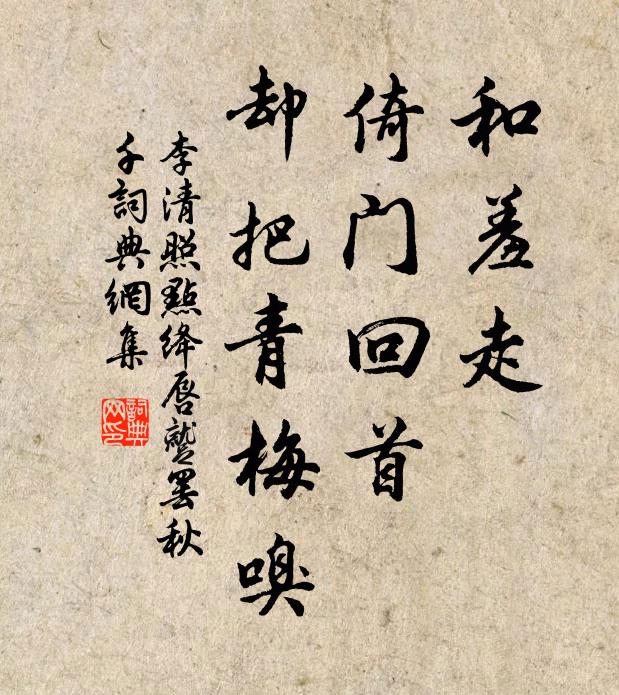 和羞走
倚門回首
却把青梅嗅
李清照點绛唇蹴罢秋
千詞典網集
詞典
网印